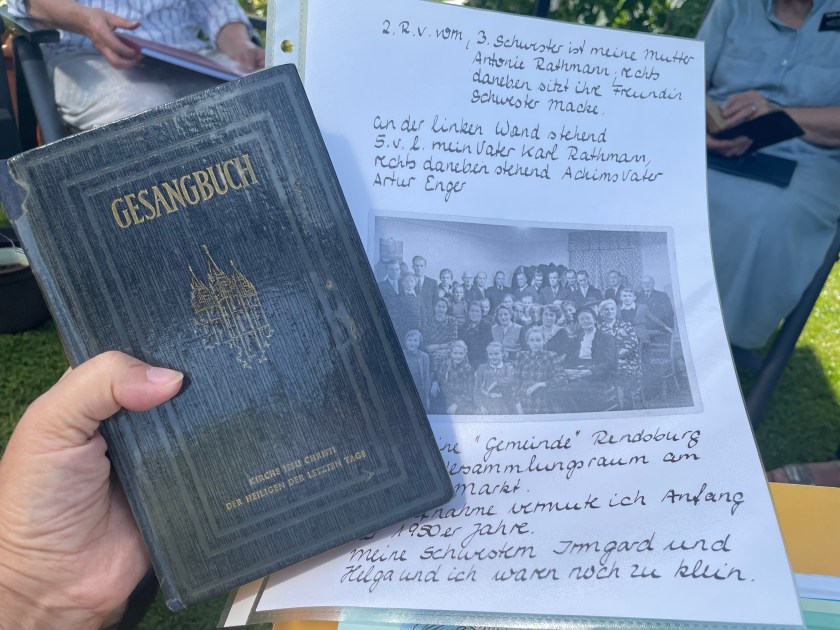 GESANGBUCH
KIRCHE JESU CHRISTI
DER HEILIGEN DER LETZTEN TAGE
2. R. v. vorn, 3. Schwester ist meine Mutter
Antonie Rathmann; rechts
daneben sitzt ihre Freundin
Schwester Macke.
an der linken Wand stehend
5. v. l. mein Vater Karl Rathmann,
rechts daneben stehend Achims Vater
Artur Enger
"Gemeinde" Rendsburg
am
markt.
vermute ich Anfang
1950er Jahre.
Meine Schwestern Irmgard und
Helga und ich waren noch zu klein.